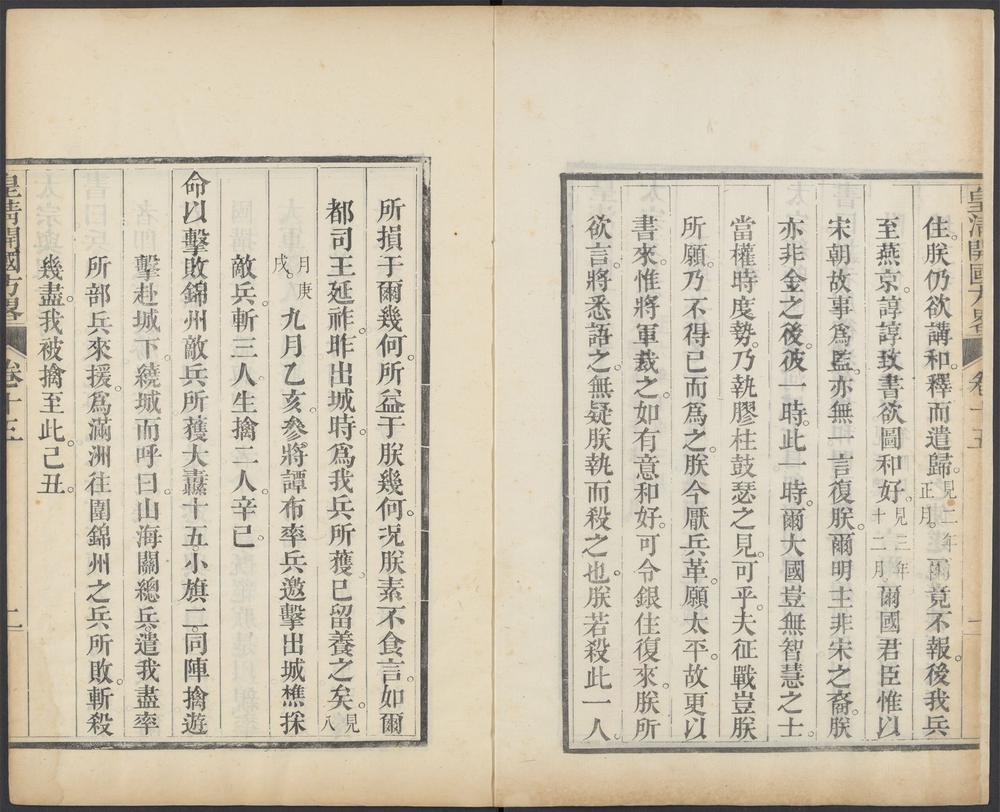 皇清開國方畧 卷十五
住。朕仍欲講和。釋而遣歸。見二年正月。爾竟不報。後我兵
至燕京。諄諄致書欲圖和好。見三年十二月。爾國君臣惟以
宋朝故事爲監。亦無一言復朕。爾明主非宋之裔。朕
亦非金之後。彼一時。此一時。爾大國豈無智慧之士。
當權時度勢。乃執膠柱鼓瑟之見。可乎。夫征戰豈朕
所願。乃不得已而爲之。朕今厭兵革。願太平。故更以
書來。惟將軍裁之。如有意和好。可令銀住復來。朕所
欲言。將悉語之。無疑朕執而殺之也。朕若殺此一人。
所損于爾幾何。所益于朕幾何。況朕素不食言。如爾
都司王延祚。昨出城時。爲我兵所獲。已留養之矣。見八
月庚戌。九月乙亥。參將譚布率兵邀擊出城樵採
敵兵。斬三人。生擒二人。辛己。
命以擊敗錦州敵兵所獲大纛十五。小旗二。同陣擒遊
擊赴城下。繞城而呼曰。山海關總兵。遣我盡率
所部兵來援。爲滿洲往圍錦州之兵所敗。斬殺
幾盡。我被擒至此。己丑。
皇清開國方畧 卷十五 二